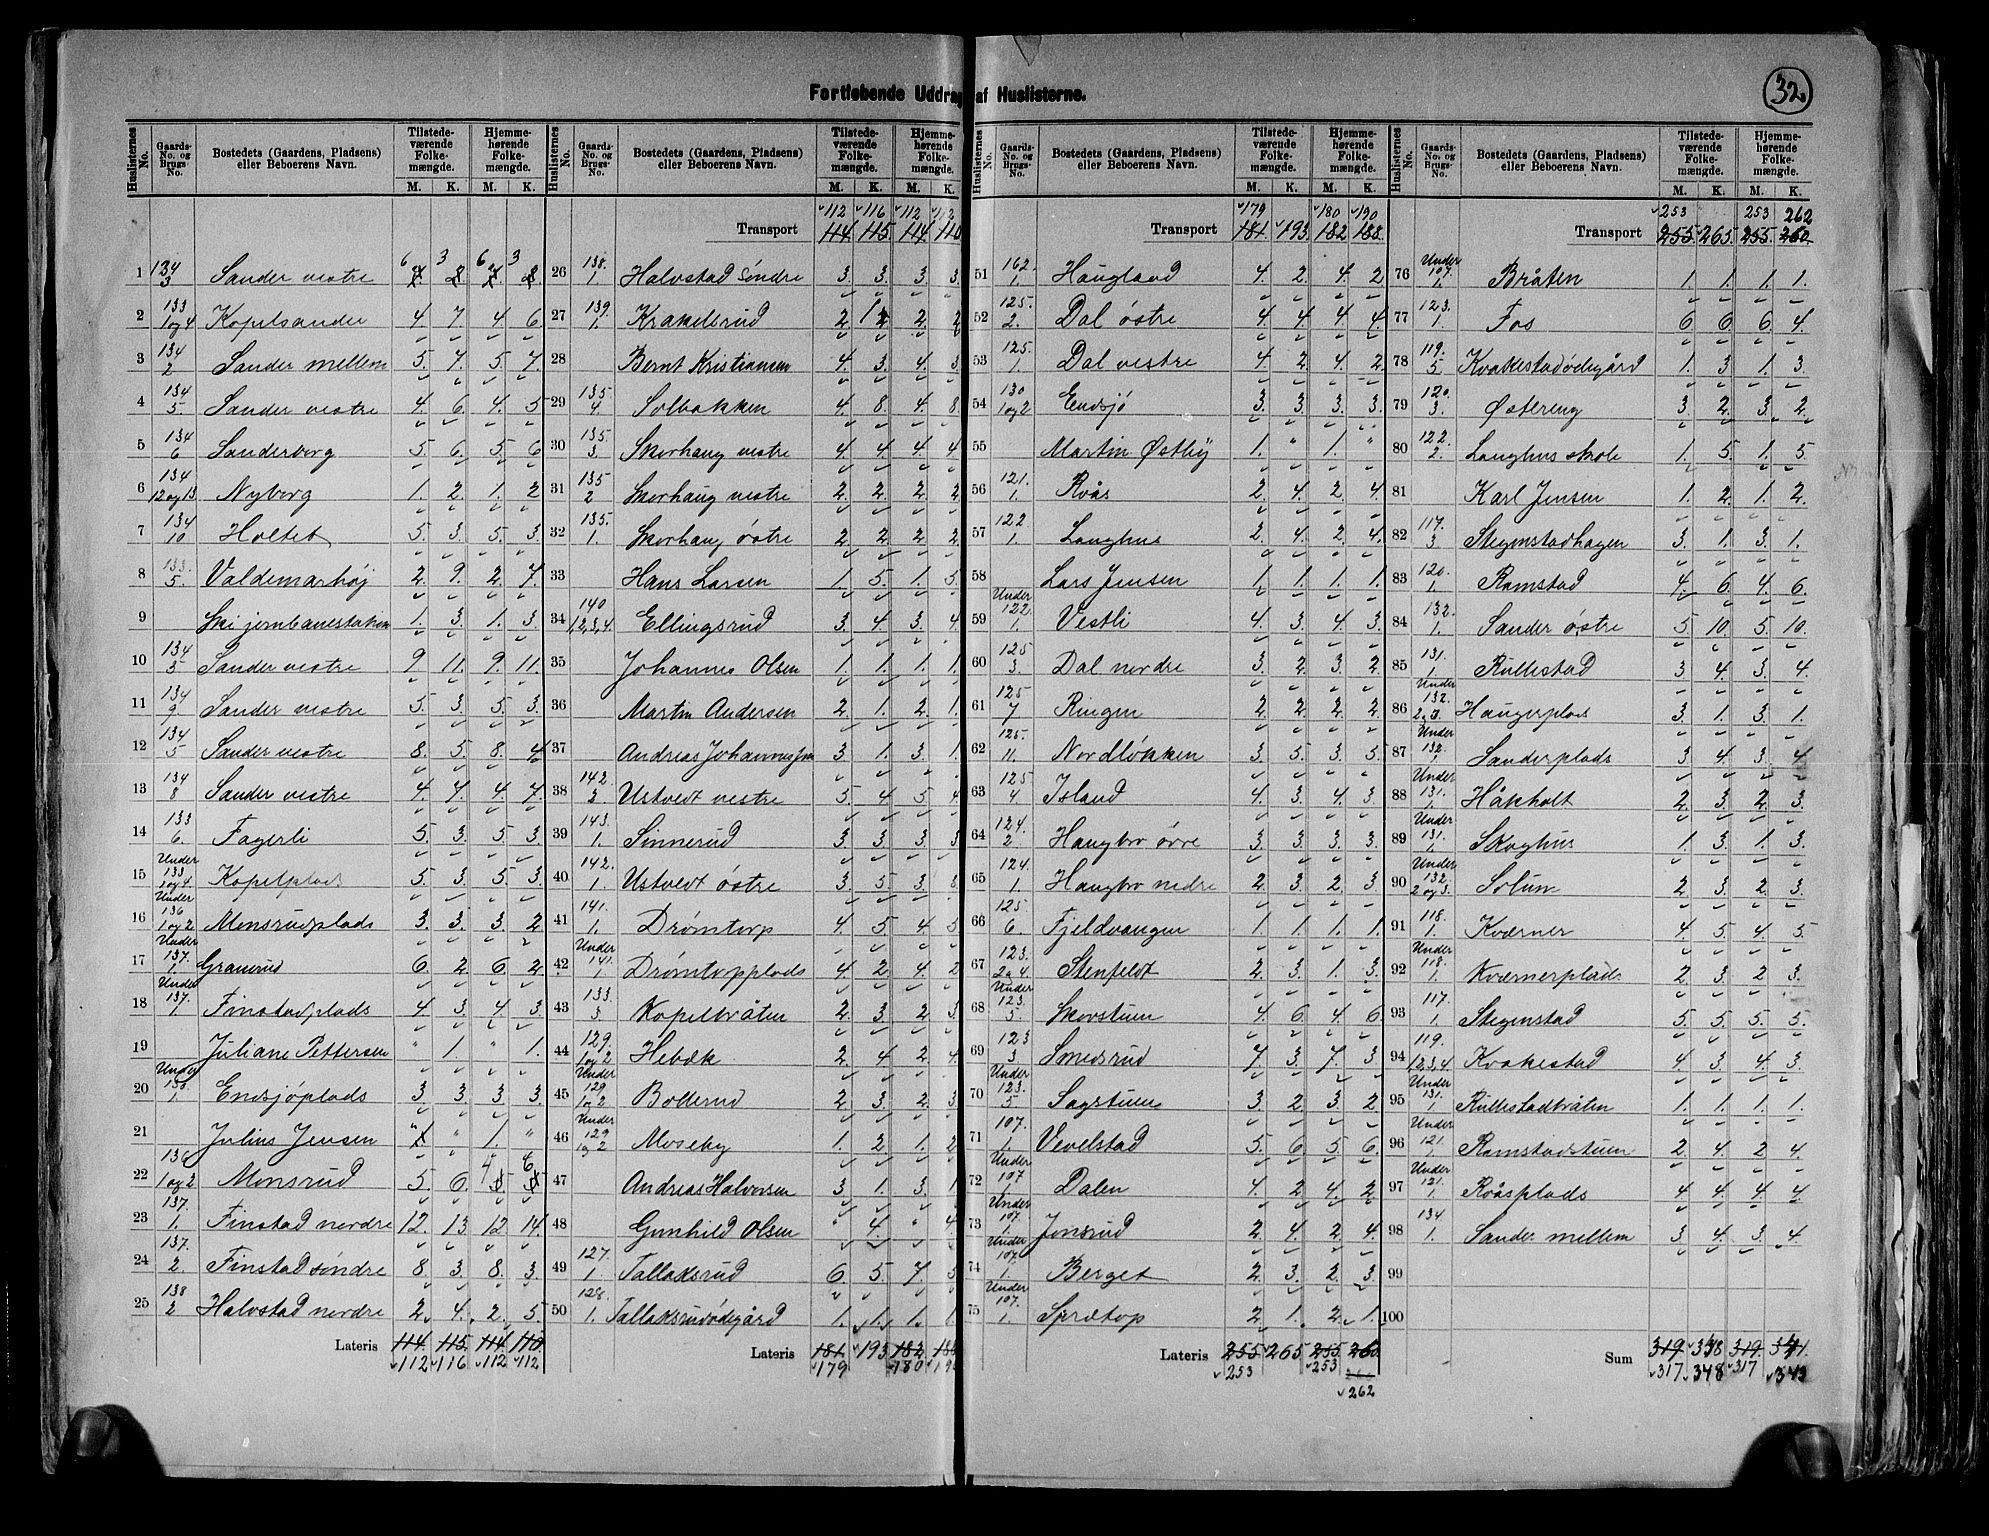 32.
Fortløbende Uddrag af Huslisterne.
Huslisternes No. Gaards-No. og Brugs-No. Bostedets (Gaardens, Pladsens) eller Beboerens Navn. Tilstedeværende Folkemængde. M. K. Hjemmehørende Folkemængde. M. K.
1 134 3 Sander vestre 6 3 6 3
2 133 1og4 Kopelsander 4. 7. 4. 6.
3 134 2 Sander mellem 5. 7. 5. 7.
4 134 5. Sander vestre 4. 6. 4. 5
5 134 6 Sanderborg 5. 6. 5. 6
6 134 12og13 Nyborg 1. 2. 1. 2
7 134 10 Holtet 5. 3. 5. 3.
8 133. 5. Valdemarhøj 2. 9. 2. 7.
9 Ski jernbanestation 1. 3. 1. 3.
10 134 5 Sander vestre 9 11. 9. 11.
11 134 9 Sander vestre 5. 3. 5. 3.
12 134 5 Sander vestre 8. 5. 8. 4
13 134 8 Sander vestre 4. 7. 4. 7.
14 133 6. Fagerli 5. 3. 5 3.
15 Under 133 1og4 Kopelplads 5. 3. 5. 3
16 Under 136 1og2 Monsrudplads 3. 3. 3. 2
17 Under 137. 1. Granerud 6 2. 6 2.
18 Under 137. 1 Finstadplads 4 3. 4 3.
19 Juliane Pettersen " 1. " 1.
20 Under 130. 1 Endsjøplads 3. 3. 3. 3.
21 Julius Jensen " " 1. "
22 136 1og2 Monsrud 5. 6. 4 6
23 137. 1. Finstad nordre 12. 13. 12. 14.
24 137. 2. Finstad søndre 8. 3. 8. 3.
25 138 2 Halvstad nordre 2. 4. 2. 5.
Lateris 114. 115. 114. 110.
112 116 112 112
Huslisternes No. Gaards-No. og Brugs-No. Bostedets (Gaardens, Pladsens) eller Beboerens Navn. Tilstedeværende Folkemængde. M. K. Hjemmehørende Folkemængde. M. K.
112 116 112 112
Transport 114. 115. 114. 110
26 138. 1 Halvstad søndre 3. 3. 3. 3.
27 139. 1. Krakelsrud 2. 1 2. 2
28 Bernt Kristiansen 4. 3. 4. 3
29 135. 4 Solbakken 4. 8. 4. 8
30 135. 3. Skorhaug vestre 4. 4. 4. 4
31 135 2 Skorhaug vestre 2. 2. 2. 2
32 135. 1. Skorhaug østre 2. 2. 2. 2
33 Hans Larsen 1. 5. 1. 5
34 140 1,2,3,4 Ellingsrud 3. 4. 3. 4
35 Johannes Olsen 1. 1. 1. 1
36 Martin Andersen 2. 1. 2. 1
37 Andreas Johannesen 3 1. 3. 1
38 142. 3. Ustvedt vestre 5. 4 5 4
39 143. 1. Sinnerud 3. 3. 3. 3
40 142. 1. Ustvedt østre 3. 5. 3.
41 141. 1. Drømtorp 4. 5 4 5
42 Under 141. 1 Drømtorpplads 4. 2 4. 2
43 133. 3. Kopelbråten 2. 3. 2 3.
44 129. 1og2 Hebæk 2. 4 2. 4.
45 Under 129 1og2 Bollerud 2. 3. 2. 3
46 Under 129 1og2 Moseby 1. 2. 1. 2
47 Andreas Halvorsen 3. 1. 3. 1
48 Gunhild Olsen " 4. " 4
49 127. 1. Talladsrud 6 5. 7. 5
50 128. 1. Talladsrudødegård 1. 1. 1. 1
Lateris 181. 193. 182
179 180
Huslisternes No. Gaards-No. og Brugs-No. Bostedets (Gaardens, Pladsens) eller Beboerens Navn. Tilstedeværende Folkemængde. M. K. Hjemmehørende Folkemængde. M. K.
179 180 190
Transport 181. 193. 182 188.
51 162. 1. Haugland 4. 2. 4. 2
52 125. 2. Dal østre 4. 4. 4. 4.
53 125. 1. Dal vestre 4. 2. 4. 2
54 130 1og2 Endsjø 3. 3. 3. 3.
55 Martin Østby 1. " 1. "
56 121. 1. Roås 2. 4. 2. 4.
57 122. 1. Langhus 2. 4. 2. 4.
58 Lars Jensen 1. 1. 1. 1.
59 Under 122. 1 Vestli 4. 3. 4. 3.
60 125 3. Dal nordre 3. 2. 3. 2
61 125 7 Ringen 2. 2. 2. 2
62 125. 11. Nordløkken 3. 5. 3. 5
63 125 4 Island 4. 3. 4. 3
64 124. 2 Haugbro øvre 3. 3. 3. 3.
65 124. 1 Haugbro nedre 2. 3. 2. 3
66 125 6. Fjeldvangen 1. 1. 1. 1.
67 123. 2og4 Stenfeldt 2. 3. 1. 3.
68 Under 123. 5 Skovstuen 4. 6 4. 6
69 123 3. Smedsrud 7. 3. 7. 3
70 Under 123. 5 Sagstuen 3. 2. 3. 2
71 107. 1 Vevelstad 5. 6. 5. 6.
72 Under 107 1 Dalen 4. 2 4. 2
73 Under 107. 1. Jonsrud 2. 4. 2. 4.
74 Under 107. 1. Berget 2. 3. 2. 3.
75 Under 107. 1. Sprætop 2. 1. 2. 1.
Lateris 255. 265. 255. 260.
253 253
262
Huslisternes No. Gaards-No. og Brugs-No. Bostedets (Gaardens, Pladsens) eller Beboerens Navn. Tilstedeværende Folkemængde. M. K. Hjemmehørende Folkemængde. M. K.
253 253 262
Transport 255. 265. 255. 260.
76 Under 107. 1. Bråten 1. 1. 1. 1.
77 123. 1 Fos 6 6. 6. 4.
78 119. 5 Kvakestadødegård 1. 3 1. 3.
79 120. 3. Østereng 3. 2. 3. 2.
80 122. 2. Langhus skole 1. 5. 1. 5
81 Karl Jensen 1. 2. 1. 2.
82 117. 3 Stegenstadhagen 3. 1. 3. 1.
83 120. 1. Ramstad 4. 6 4. 6
84 132. 1. Sander østre 5 10. 5. 10.
85 131. 1. Rullestad 3 4. 3. 4
86 Under 132. 2og3. Haugerplads 3. 1. 3. 1.
87 Under 132. 1 Sanderplads 3 4. 3 4.
88 Under 131. 1. Håkholt 2. 3. 2. 3.
89 Under 131. 1. Skoghus 1 3. 1. 3
90 Under 132. 2og3. Solum 2 3. 2. 3.
91 118. 1. Kværner 4. 5 4. 5.
92 Under 118. 1. Kværnerplads 2. 3. 2 3.
93 117. 1. Stegenstad 5. 5. 5. 5.
94 119. 1,2,3,4. Kvakestad 4. 3. 4. 3.
95 Under 131. 1 Rullestadbråten 1. 1. 1. 1.
96 Under 121. 1 Ramstadstuen 2. 4. 2 4.
97 Under 121. 1 Roåsplads 4. 4. 4. 4.
98 134. 1. Sander mellem 3 4. 3. 4.
99
100
Sum 319 348 319. 341.
317 348 317 343